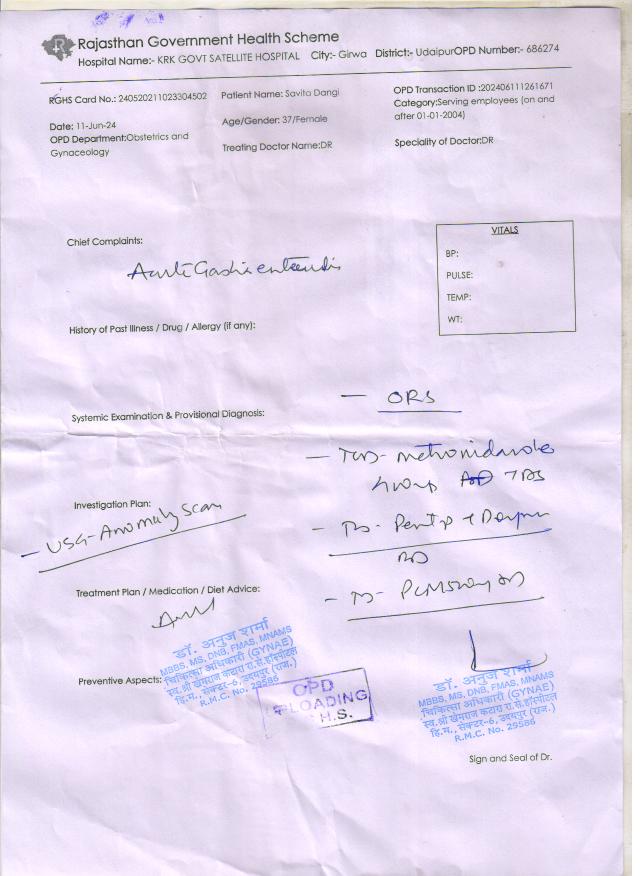 Rajasthan Government Health Scheme
Hospital Name:- KRK GOVT SATELLITE HOSPITAL City:- Girwa District:- UdaipurOPD Number:- 686274
RGHS Card No.: 240520211023304502
Patient Name: Savita Dangi
OPD Transaction ID :202406111261671
Category:Serving employees (on and
after 01-01-2004)
Date: 11-Jun-24
Age/Gender: 37/Female
OPD Department:Obstetrics and
Gynaceology
Treating Doctor Name:DR
Speciality of Doctor:DR
VITALS
Chief Complaints:
BP:
PULSE:
TEMP:
WT:
History of Past Illness / Drug / Allergy (if any):
- ORS
Systemic Examination & Provisional Diagnosis:
Investigation Plan:
- USG-Anomaly Scan
Treatment Plan / Medication / Diet Advice:
BD
Preventive Aspects:
डॉ. अनुज शर्मा
MBBS, MS, DNB, FMAS, MNAMS
चिकित्सा अधिकारी (GYNAE)
हि.म., सेक्टर-6, उदयपुर (राज.)
R.M.C. No. 29586
OPD
H.S.
डॉ. अनुज शर्मा
MBBS, MS, DNB, FMAS, MNAMS
चिकित्सा अधिकारी (GYNAE)
हि.म., सेक्टर-6, उदयपुर (राज.)
R.M.C. No. 29586
Sign and Seal of Dr.